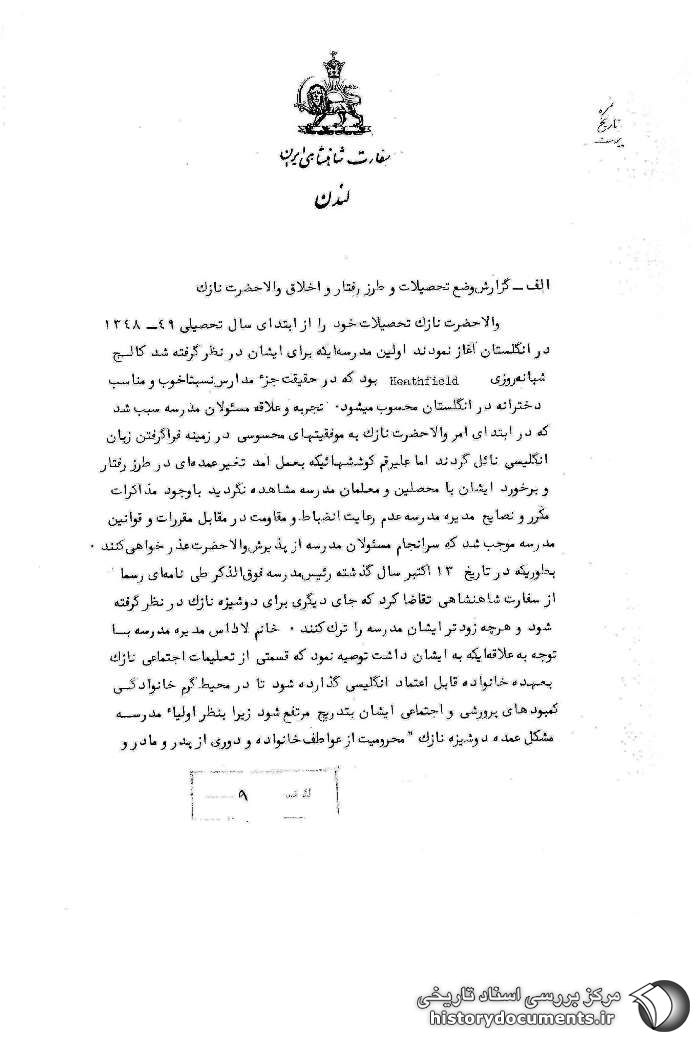 سفارت شاهنشاهی ایران
لندن
نمره
تاریخ
پیوست
الف ــ گزارش وضع تحصیلات و طرز رفتار و اخلاق والاحضرت نازك
والاحضرت نازك تحصیلات خود را از ابتدای سال تحصیلی ۴۹ــ ۱۳۴۸
در انگلستان آغاز نمودند اولین مدرسه‌ایکه برای ایشان در نظر گرفته شد کالـج
شبانه‌روزی Heathfield بود که در حقیقت جزء مدارس نسبتا خوب و مناسب
دخترانه در انگلستان محسوب میشود۰ تجربه و علاقه مسئولان مدرسه سبب شد
که در ابتدای امر والاحضرت نازك به موفقیتهای محسوسی در زمینه فراگرفتن زبان
انگلیسی نائل گردند اما علیرقم کوششهائیکه بعمل امد تغیر عمده‌ای در طرز رفتار
و برخورد ایشان با محصلین و معلمان مدرسه مشاهده نگردید باوجود مذاکرات
مکرر و نصایح مدیره مدرسه عدم رعایت انضباط و مقاومت در مقابل مقررات و قوانین
مدرسه موجب شد که سرانجام مسئولان مدرسه از پذیرش والاحضرت عذر خواهی کنند ۰
بطوریکه در تاریخ ۱۳ اکتبر سال گذشته رئیس مدرسه فوق‌الذکر طی نامه‌ای رسما
از سفارت شاهنشاهی تقاضا کرد که جای دیگری برای دوشیزه نازك در نظر گرفته
شود و هرچه زودتر ایشان مدرسه را ترك کنند ۰ خانم لاداس مدیره مدرسه بـا
توجه به علاقه‌ایکه به ایشان داشت توصیه نمود که قسمتی از تعلیمات اجتماعی نازك
بعهده خانواده قابل اعتماد انگلیسی گذارده شود تا در محیط گرم خانوادگـی
کمبودهای پرورشی و اجتماعی ایشان بتدریج مرتفع شود زیرا بنظر اولیاء مدرسـه
مشکل عمده دوشیزه نازك "محرومیت از عواطف خانواده و دوری از پدر و مادر و
۹
مرکز بررسی اسناد تاریخی
historydocuments.ir